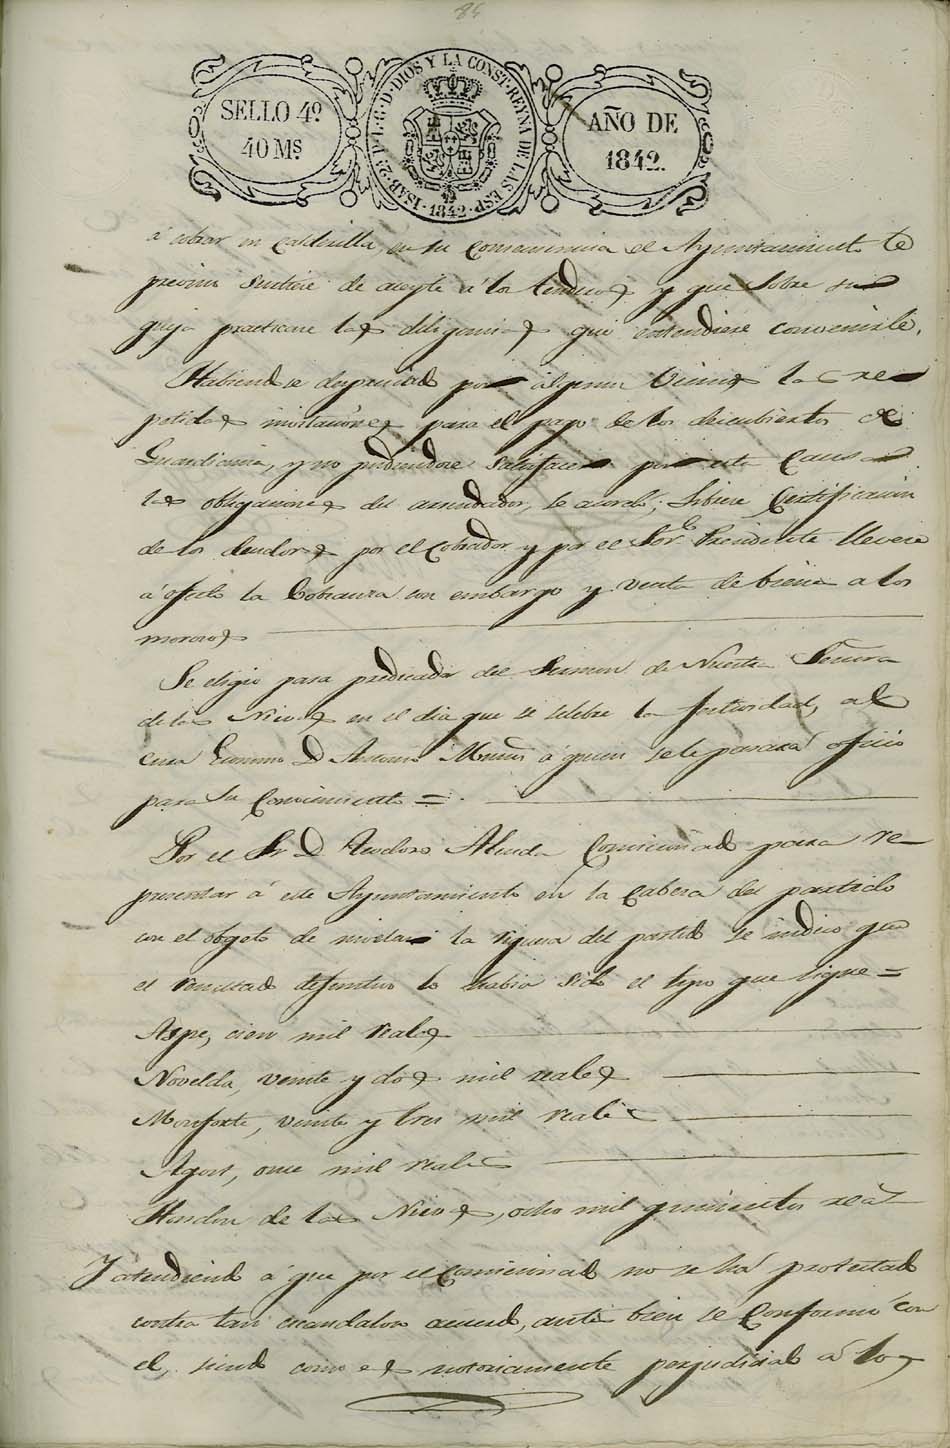 84
SELLO 4º
40 Ms.
ISAB. 2ª P. L. G. D. DIOS Y LA CONST. REYNA DE LAS ESP.
1842
AÑO DE
1842.
á cobrar en Calderilla, en su Consecuencia el Ayuntamiento le
previno surtiese de aceyte á los tenderos y que sobre su
queja practicase las diligencias que entendiese convenirle.
Habiendose despreciado por algunos Vecinos las re
petidas invitaciones para el pago de los descubiertos de
Guardianía, y no pudiendose satisfacer por esta Causa
las obligaciones del arrendador, se acordó; librese Certificacion
de los deudores por el Cobrador y por el Sor. Presidente llevese
á efecto la Cobranza con embargo y venta de bienes a los
morosos
Se eligió para predicador del Sermon de Nuestra Señora
de las Nieves en el dia que se celebre la festividad, al
cura Ecónomo D. Antonio á quien se le pasará oficio
para su Conocimiento =
Por el Sr. D. Teodoro Alenda Comicionado para re
presentar á este Ayuntamiento en la Cabesa del partido
con el objeto de nivelar la riquesa del partido se indicó que
el resultado definitivo lo habia sido el tipo que sigue =
Aspe, cien mil reales
Novelda, veinte y dos mil reales
Monforte, veinte y tres mil reales
Agost, once mil reales
Hondon de las Nieves, ocho mil quinientos reas
Y atendiendo á que por el Comicionado no se há protestado
contra tan escandaloso acuerdo, antes bien se Conformó con
el, siendo como es notoriamente perjudicial á los